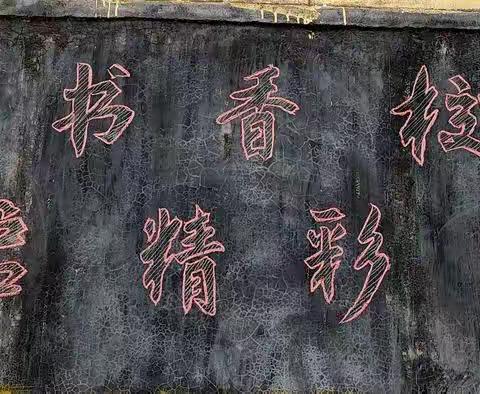 书香校
精彩